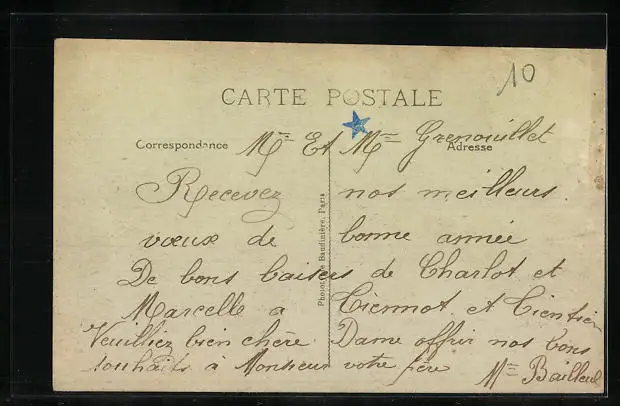 10
CARTE POSTALE
Correspondance
Adresse
Mr Et Mme Grenouillet
Recevez nos meilleurs
vœux de bonne année
De bons baisers de Charlot et
Marcelle a et
Veuilliez bien chère Dame offrir nos bons
souhaits à Monsieur votre père
Mme Bailleul
Phototypie Baudinière, Paris